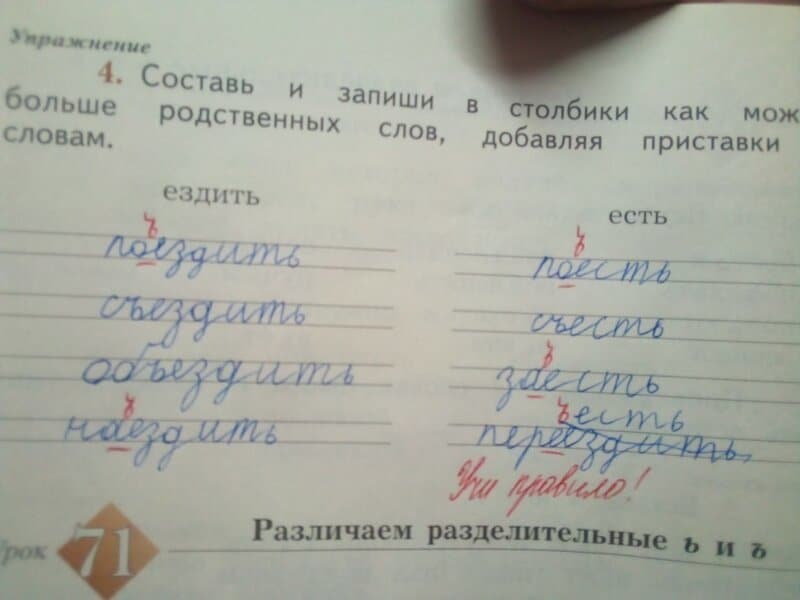 Упражнение
4. Составь и запиши в столбики как мож
больше родственных слов, добавляя приставки
словам.
ездить есть
ъ ъ
поездить поесть
съездить съесть
ъ
объездить заесть
ъ ъесть
наездить переездить
Учи правило!
урок 71 Различаем разделительные ь и ъ